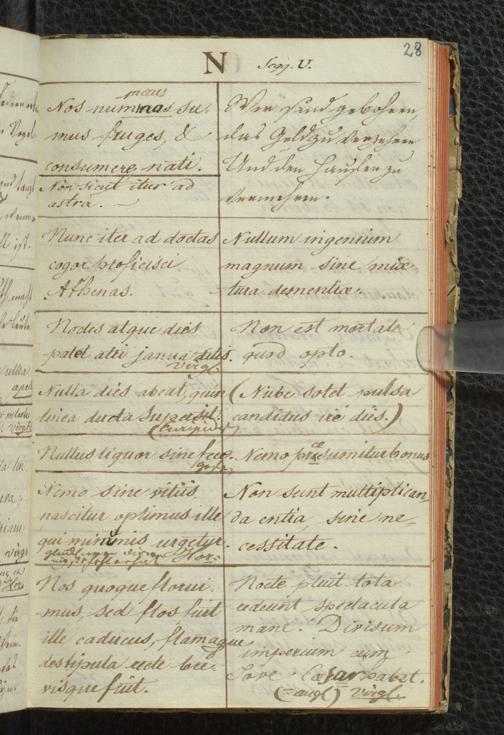 28
N Seqq. U.
merus
Nos nummos su-
mus fruges, &
consumere nati.
Non sicut itur ad
astra.
Nunc iter ad doctas
cogor proficisci
Athenas.
Noctes atque dies
patet atri janua ditis.
Virgl
Nulla dies abeat, quin
linea ducta supersit.
Nullus liquor sine fece
Nemo sine vitiis
nascitur optimus ille
qui minimis urgetur.
Hor.
Nos quoque florui-
mus, sed flos fuit
ille caducus, flamaque
de stipula
visque fuit.
Wir sind gebohren,
das Geld zu verzehren
Und den Haufen zu
vermehren.
Nullum ingenium
magnum sine mix
tura dementiæ.
Non est mortale
quod opto.
(Nube solet pulsa
candidus ire dies.)
Nemo præsumitur bonus
Non sunt multiplican-
da entia, sine ne-
cessitate.
Nocte pluit tota
redeunt spectacula
mane. Divisum
imperium cum
Jove Cæsar habet.
(Virgl.